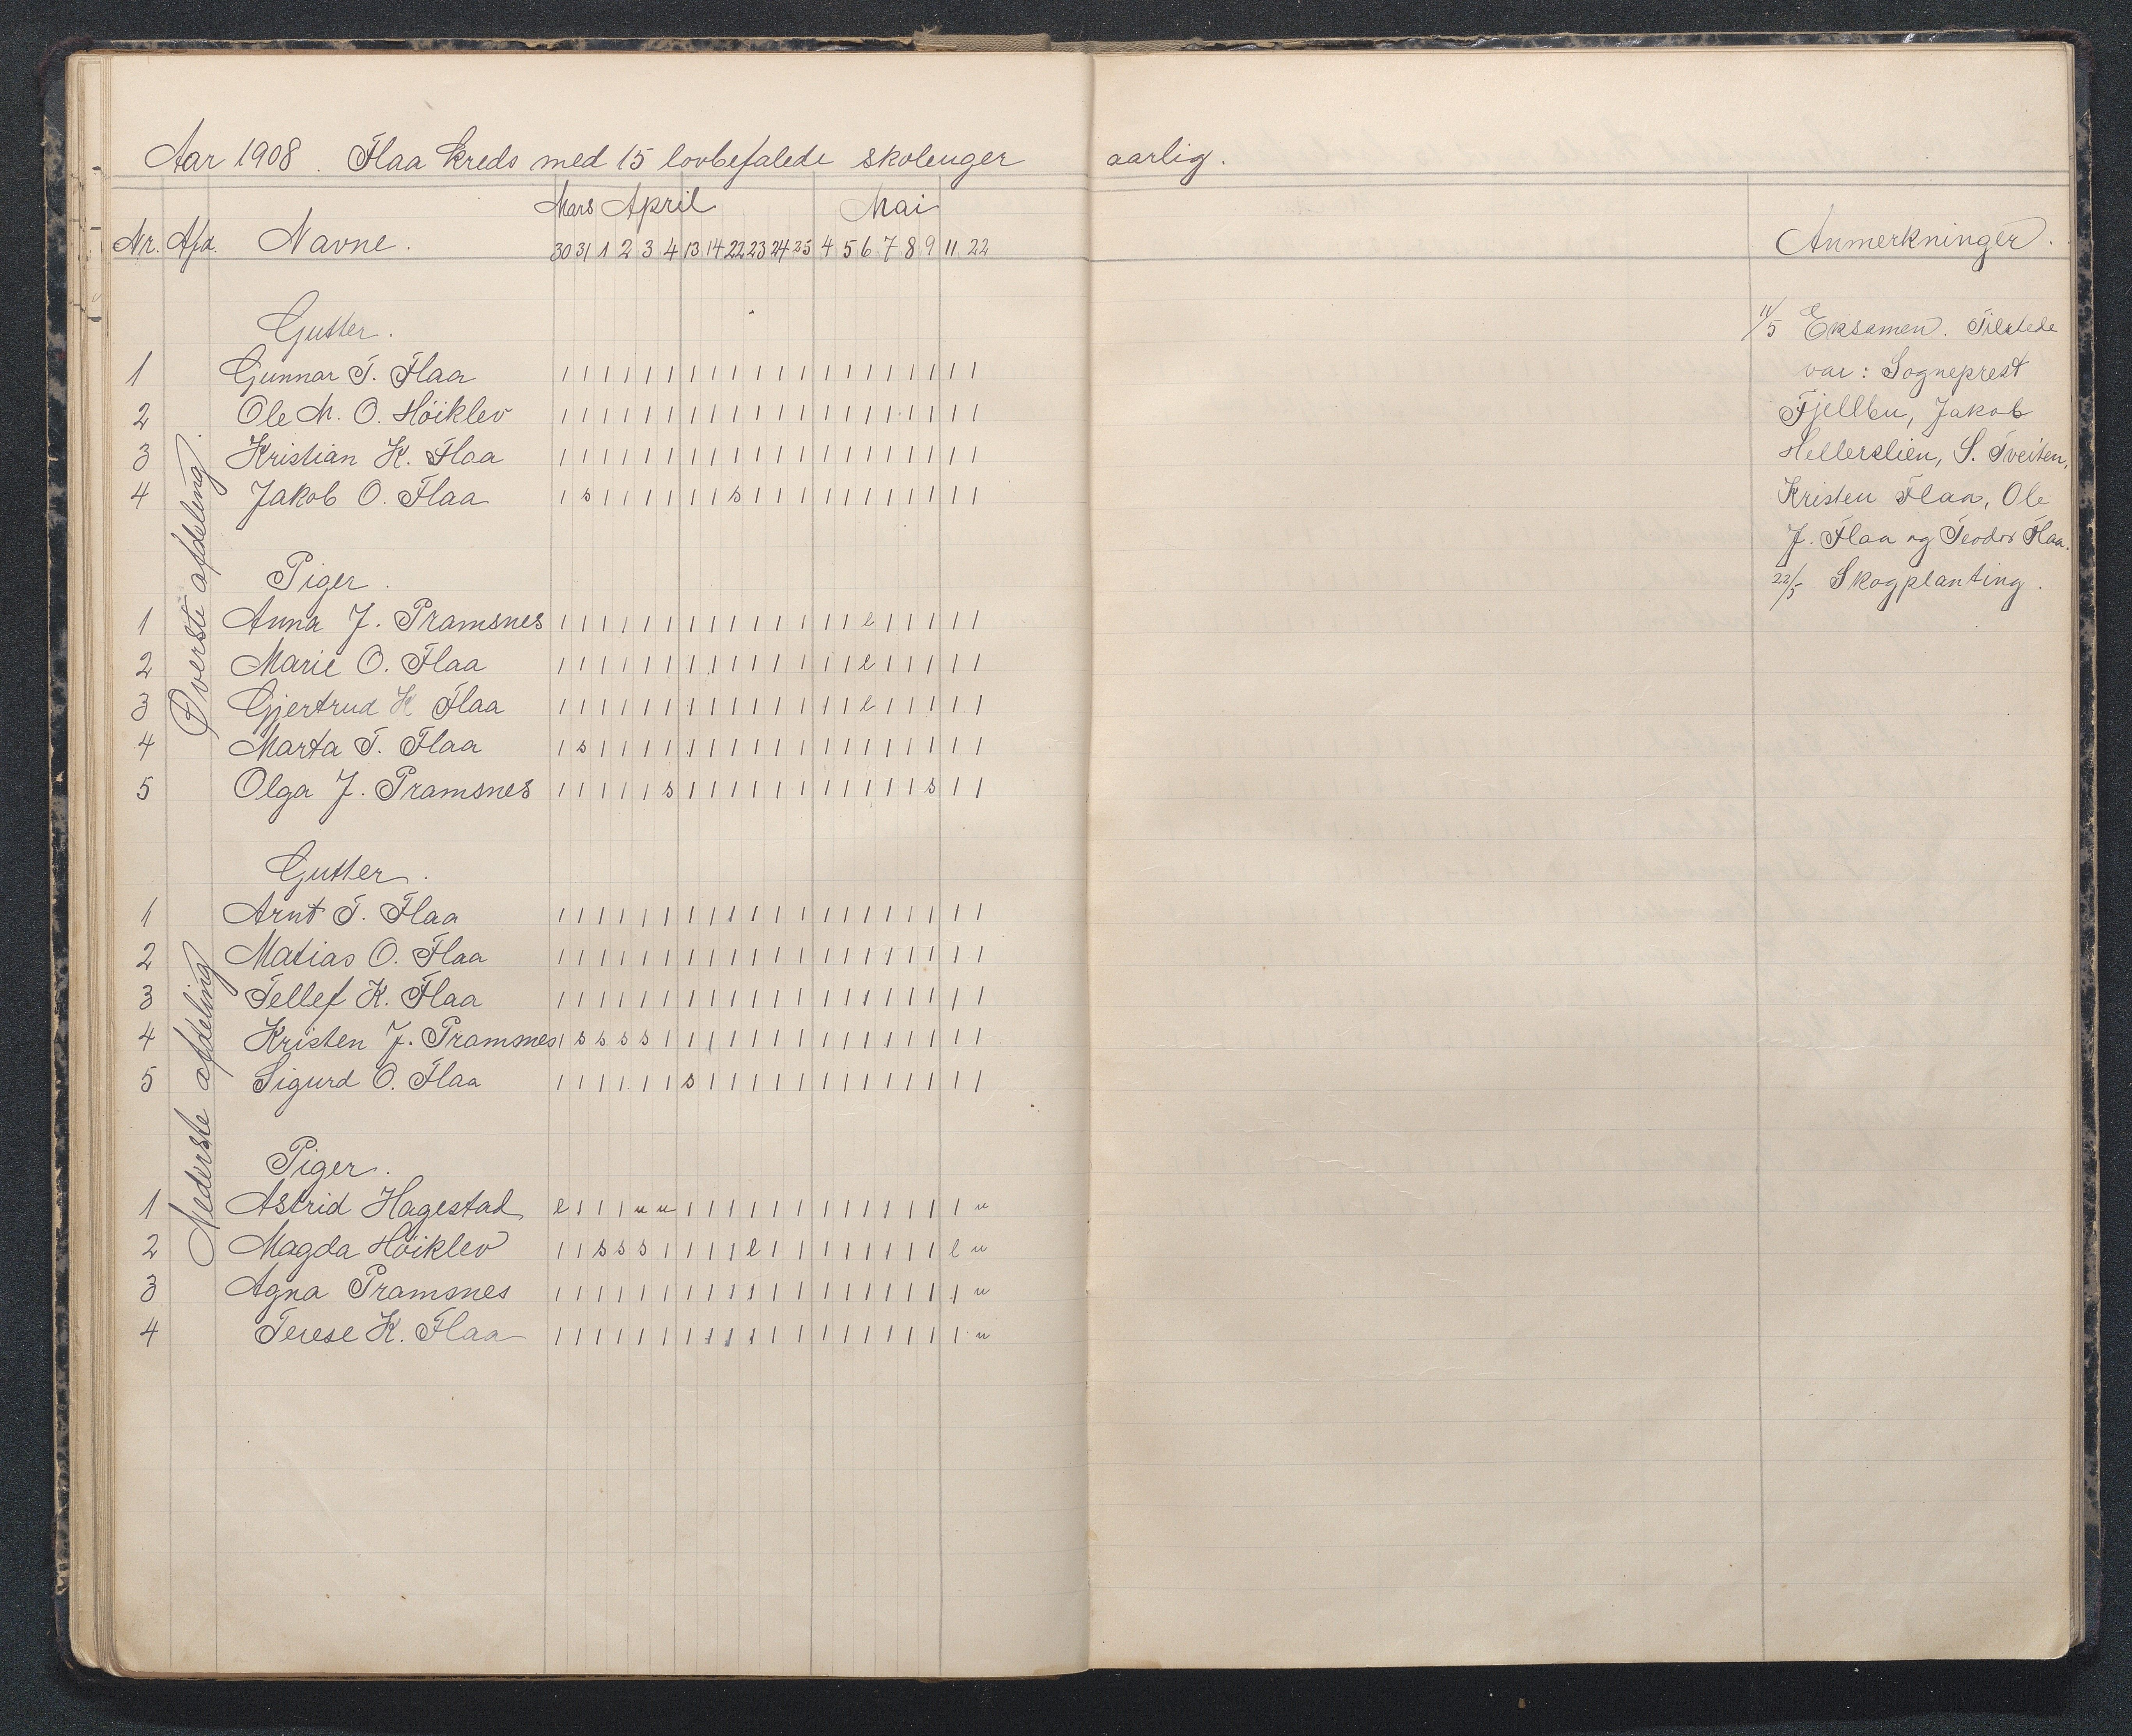 Aar 1908. Flaa kreds med 15 lovbefalede skoleuger aarlig.
Mars April Mai
Nr. Afd. Navne. 30 31 1 2 3 4 13 14 22 23 24 25 4 5 6 7 8 9 11 22 Anmerkninger.
Øverste afdeling.
Gutter.
1 Gunnar T. Flaa 1 1 1 1 1 1 1 1 1 1 1 1 1 1 1 1 1 1 1 1
2 Ole M. O. Höiklev 1 1 1 1 1 1 1 1 1 1 1 1 1 1 1 1 1 1 1 1
3 Kristian K. Flaa 1 1 1 1 1 1 1 1 1 1 1 1 1 1 1 1 1 1 1 1
4 Jakob O. Flaa 1 s 1 1 1 1 1 1 s 1 1 1 1 1 1 1 1 1 1 1
Piger.
1 Anna J. Pramsnes 1 1 1 1 1 1 1 1 1 1 1 1 1 1 e 1 1 1 1 1
2 Marie O. Flaa 1 1 1 1 1 1 1 1 1 1 1 1 1 1 e 1 1 1 1 1
3 Gjertrud K Flaa 1 1 1 1 1 1 1 1 1 1 1 1 1 1 e 1 1 1 1 1
4 Marta T. Flaa 1 s 1 1 1 1 1 1 1 1 1 1 1 1 1 1 1 1 1 1
5 Olga J. Pramsnes 1 1 1 1 1 s 1 1 1 1 1 1 1 1 1 1 1 s 1 1
Nederste afdeling
Gutter.
1 Arnt T. Flaa 1 1 1 1 1 1 1 1 1 1 1 1 1 1 1 1 1 1 1 1
2 Matias O. Flaa 1 1 1 1 1 1 1 1 1 1 1 1 1 1 1 1 1 1 1 1
3 Tellef K. Flaa 1 1 1 1 1 1 1 1 1 1 1 1 1 1 1 1 1 1 1 1
4 Kristen J. Pramsnes 1 s s s s 1 1 1 1 1 1 1 1 1 1 1 1 1 1 1
5 Sigurd O. Flaa 1 1 1 1 1 1 s 1 1 1 1 1 1 1 1 1 1 1 1 1
Piger.
1 Astrid Hagestad e 1 1 1 u u 1 1 1 1 1 1 1 1 1 1 1 1 1 u
2 Magda Höiklev 1 1 s s s 1 1 1 1 e 1 1 1 1 1 1 1 1 e u
3 Agna Pramsnes 1 1 1 1 1 1 1 1 1 1 1 1 1 1 1 1 1 1 1 u
4 Terese K. Flaa 1 1 1 1 1 1 1 1 1 1 1 1 1 1 1 1 1 1 1 u
11/5 Eksamen. Tilstede
var: Sogneprest
Fjellbu, Jakob
Hellerslien, S. Tveiten,
Kristen Flaa, Ole
J. Flaa og Teodor Flaa.
22/5 Skogplanting.